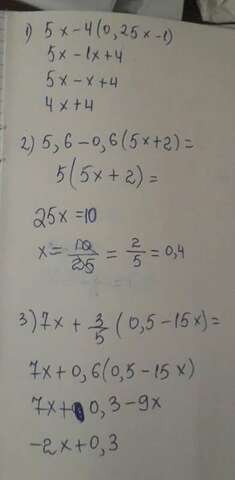 1) 5x-4(0,25x-1)
5x-1x+4
5x-x+4
4x+4
2) 5,6-0,6(5x+2)=
5(5x+2)=
25x=10
x=10/25=2/5=0,4
3) 7x+3/5(0,5-15x)=
7x+0,6(0,5-15x)
7x+0,3-9x
-2x+0,3